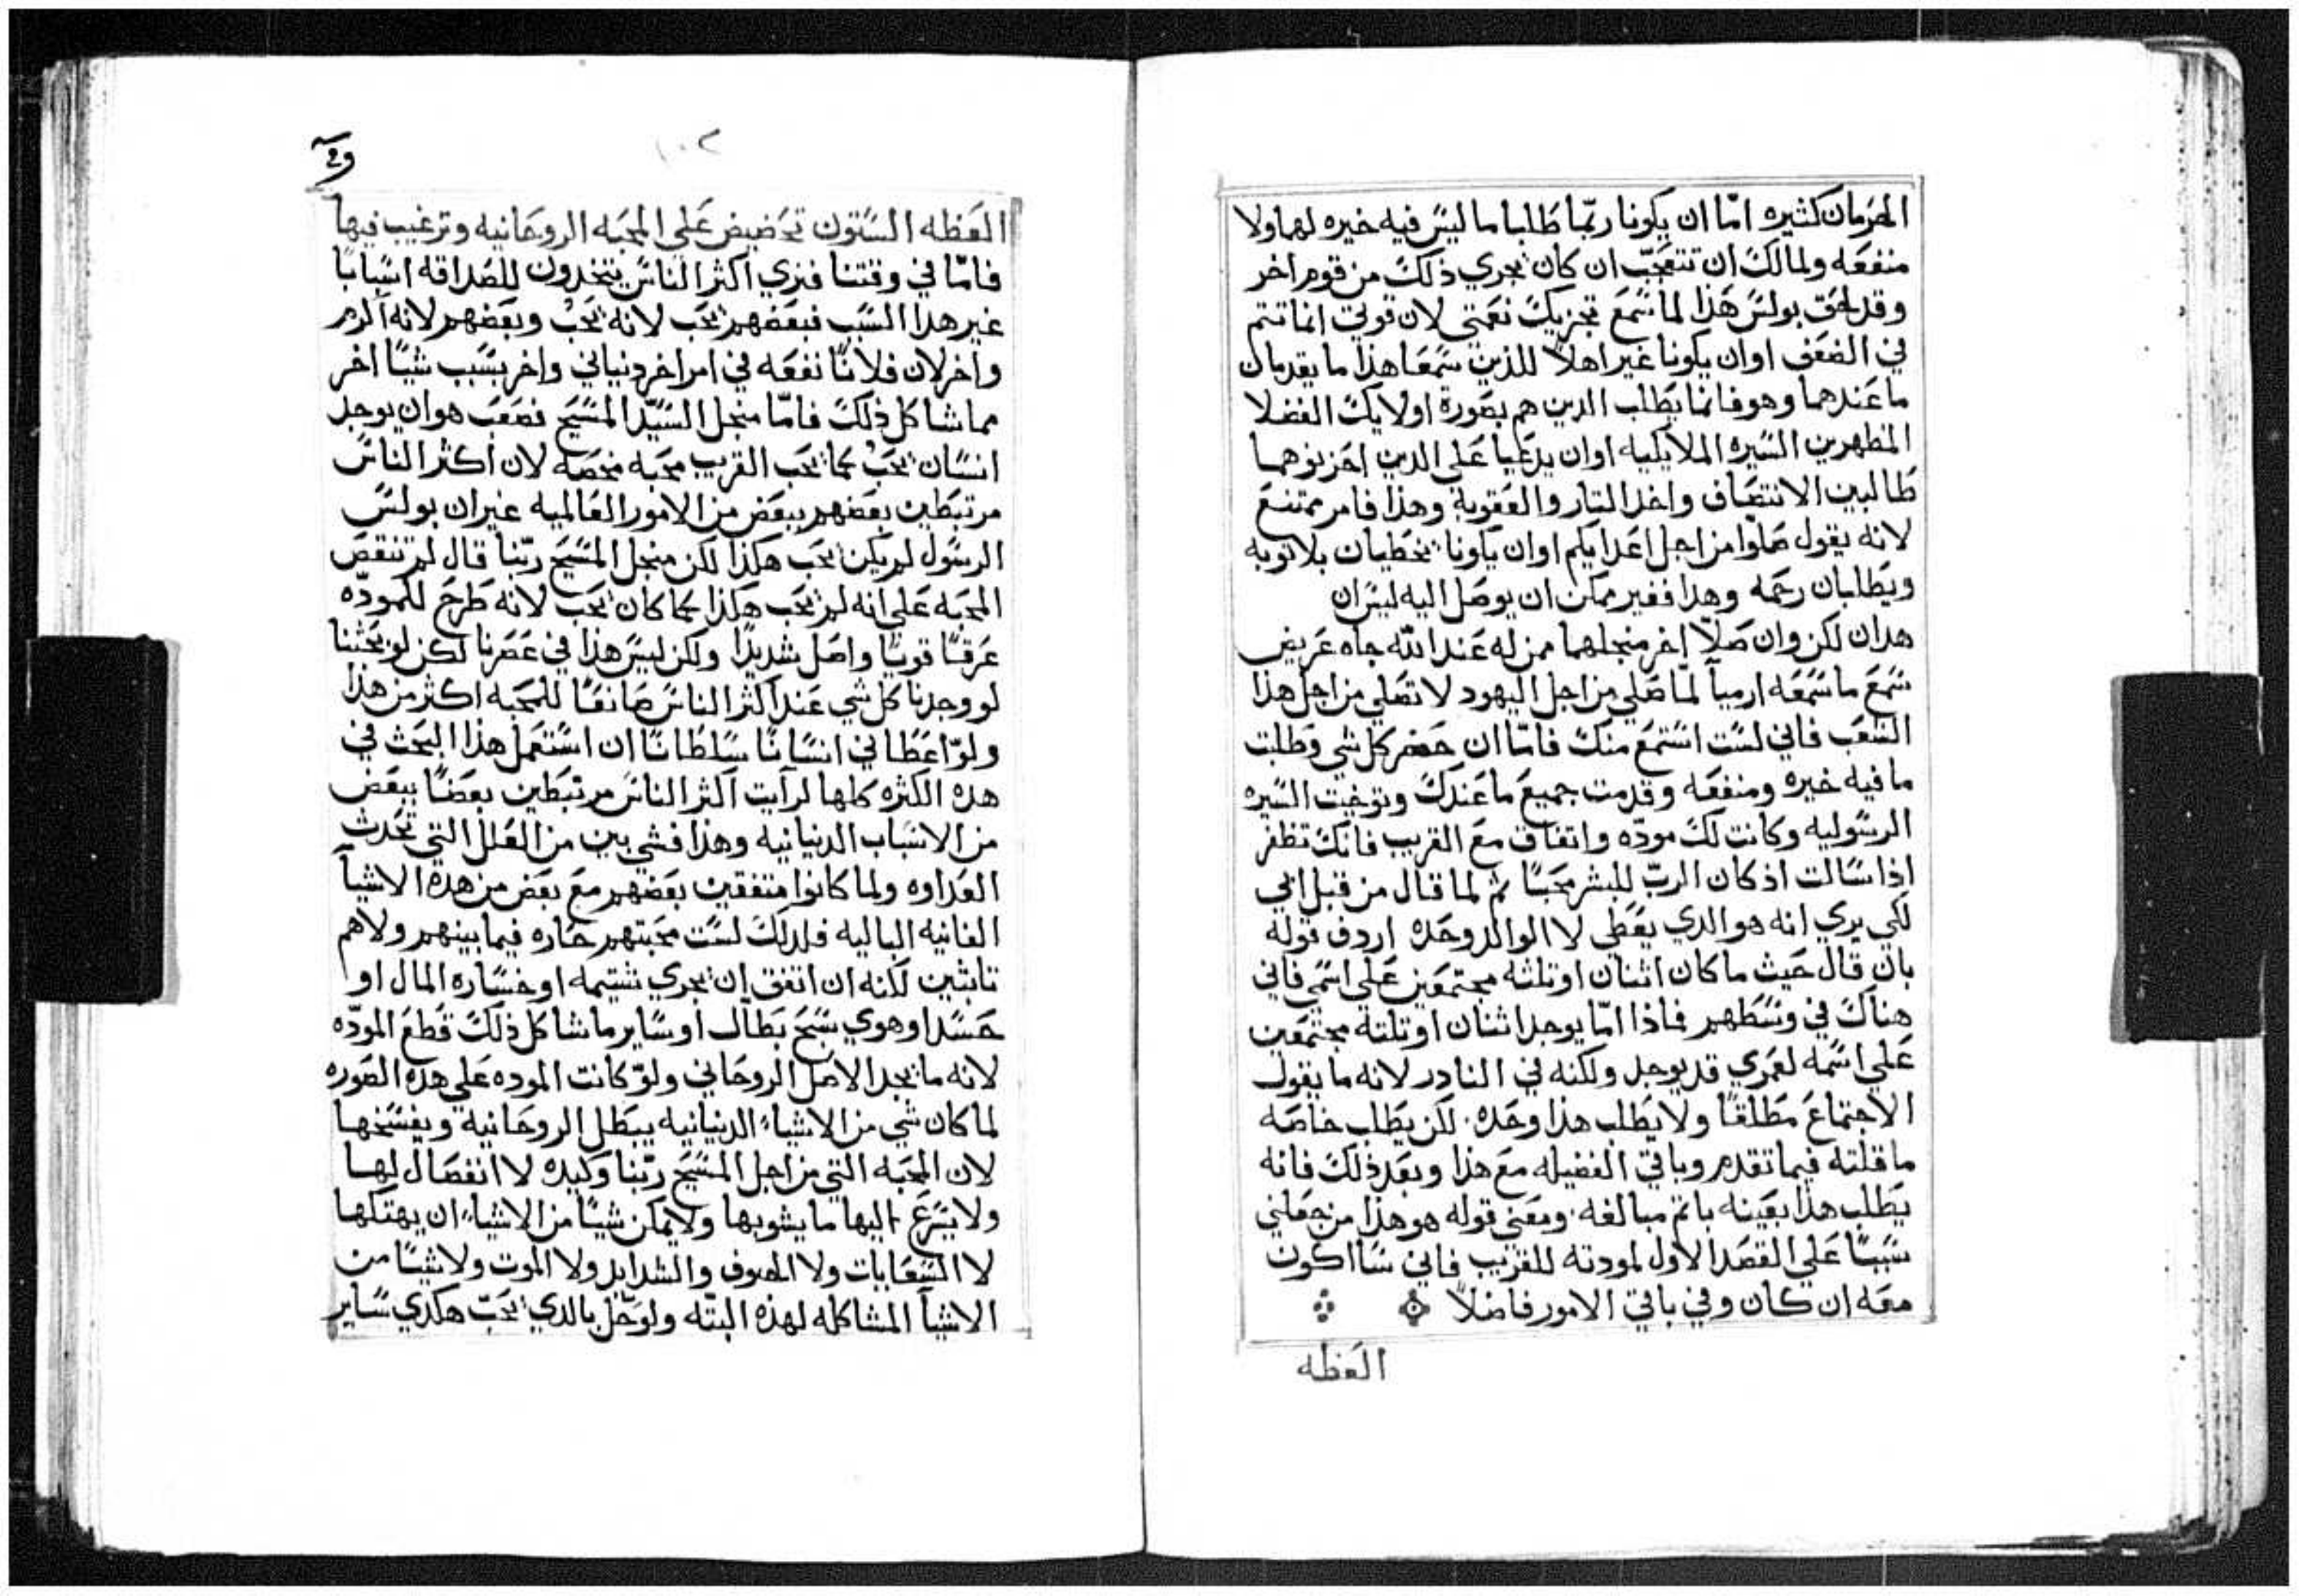 الحرمان كثيره امّا ان يكونا ربّما طلبا ما ليس فيه خيره لهما ولا
منفعه ولمالك ان تتعجّب ان كان يجري ذلك من قوم اخر
وقد لحق بولس هذا لما سمع تجزيك نعمتي لان قوتي انما تتم
في الضعف اوان يكونا غير اهلاً للذين سمعا هذا ما يقدمان
ما عندهما وهو فانما يطلب الدين هم بصورة اولايك الفضلا
المظهرين السيره الملايكيه اوان يدعيا على الدين احزنوهما
طالبين الانتصاف واخذ التار والعقوبة وهذا فامر ممتنع
لانه يقول صلّوا من اجل اعدايكم اوان يكونا يخطيان بلا توبه
ويطلبان رحمه وهدا فغير ممكن ان يوصل اليه ليس ان
هدان لكن وان صلّا اخر منجلهما ممن له عند الله جاه عريض
سمع ما سمعه ارميآ لمّا صلي من اجل اليهود لا تصلي من اجل هذا
الشعب فاني لست استمع منك فامّا ان حضر كل شي وطلبت
ما فيه خيره ومنفعه وقدمت جميع ما عندك وتوخيت السيره
الرسوليه وكانت لك مودّه واتفاق مع القريب فانك تظفر
اذا سالت اذ كان الربّ للبشر محبّاً ثم لما قال من قبل ابي
لكي يري انه هو الدي يعطي لا الوالد وحده اردف قوله
بان قال حيث ما كان اثنان او تلثه مجتمعين علي اسمي فاني
هناك في وسطهم فاذا امّا يوجد اثنان او تلتة مجتمعين
علي اسمه لعمري قد يوجد ولكنه في النادر لانه ما يقول
الاجتماع مطلقاً ولا يطلب هذا وحده لكن يطلب خاصه
ما قلته فيما تقدم وباقي الفضيله مع هذا وبعد ذلك فانه
يطلب هذا بعينه باتم مبالغه ومعني قوله هو هذا من جعلني
سبباً علي القصد الاول لمودته للقريب فاني سااكون
معه ان كان وفي باقي الامور فاضلاً
العظه
١٠٢
العظه الستون تحضيض علي المحبه الروحانيه وترغيب فيها
فامّا في وقتنا فنري اكثر الناس يتخدون للصداقه اسباباً
غير هدا السبب فبعضهم يحب لانه يحب وبعضهم لانه اكرم
واخر لان فلاناً نفعه في امر اخر دنياني واخر بسبب شياً اخر
مما شاكل ذلك فامّا منجل السيّد المسيح فصعب هو ان يوجد
انسان يحب كما يحب القريب محبه محضه لان اكثر الناس
مرتبطين بعضهم ببعض من الامور العالميه غير ان بولس
الرسول لم يكن يحب هكذا لكن منجل المسيح ربّنا قال لم تنقص
المحبه على انه لم يحب هكذا كما كان يحب لانه طرح للمودّه
عرقاً قويّاً واصل شديدًا ولكن ليس هذا في عصرنا لكن لو بحثنا
لو وجدنا كل شي عند اكثر الناس صانعاً للمحبه اكثر من هذا
ولو اعطاني انساناً سلطاناً ان استعمل هذا البحث في
هده الكثره كلها لرايت اكثر الناس مرتبطين بعضاً ببعض
من الاسباب الدنيانيه وهذا فشي بين من العلل التي تحدث
العداوه ولما كانوا متفقين بعضهم مع بعض من هده الاشيآ
الفانيه الباليه فلدلك لست محبتهم حاره فيما بينهم ولا هم
تابثين لكنه ان اتفق ان يجري شتيمه او خساره المال او
حسد او هوي سبح بطال او ساير ما شاكل ذلك قطع المودّه
لانه ما يجد الاصل الروحاني ولو كانت الموده علي هده الصوره
لما كان شي من الاشياء الدنيانيه يبطل الروحانيه ويفسخها
لان المحبه التي من اجل المسيح ربّنا وكيده لا انفصال لها
ولا يسرع اليها ما يشوبها ولا يمكن شياً من الاشياء ان يهتكها
لا السعايات ولا الخوف والشدايد ولا الموت ولا شياً من
الاشيآ المشاكله لهذه البتّه ولو حلّ بالدي يحبّ هكدي ساير